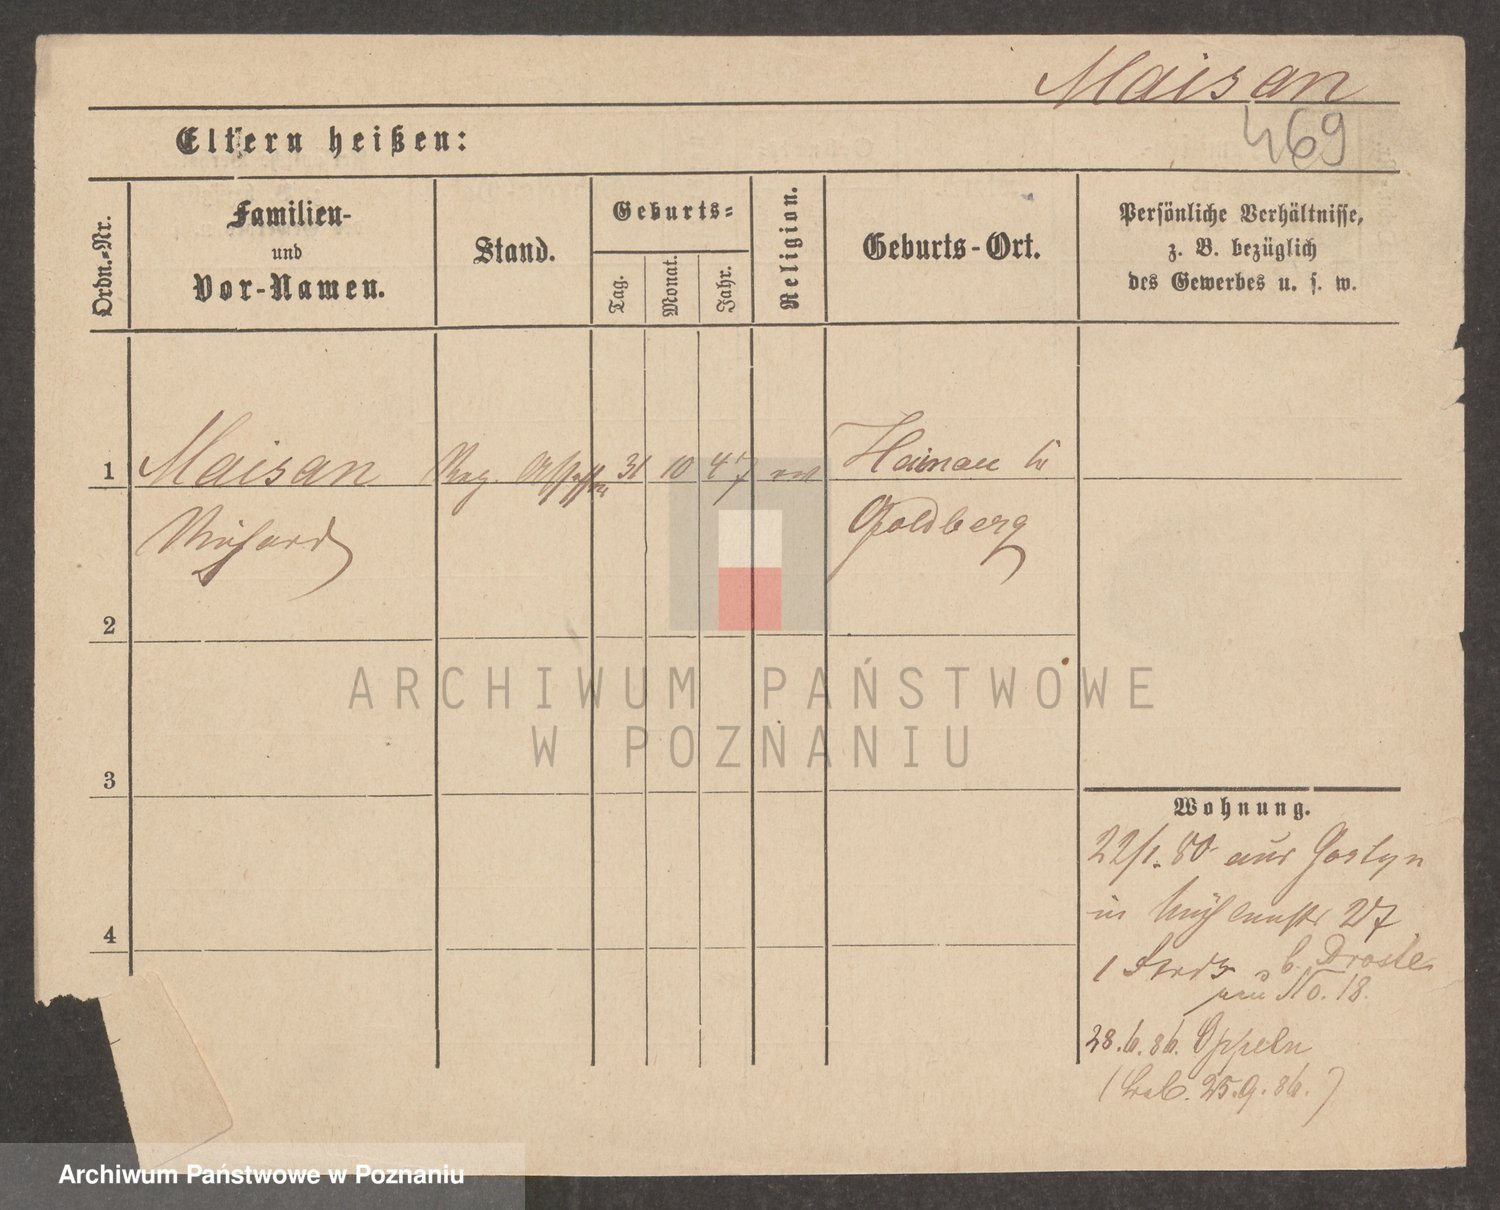 Maisan
469
Eltern heißen:
Ordn.-Nr.
Familien-
und
Vor-Namen.
Stand.
Geburts-
Tag.
Monat.
Jahr.
Religion.
Geburts-Ort.
Persönliche Verhältnisse,
z. B. bezüglich
des Gewerbes u. s. w.
1
Maisan Reg. Assessor 31 10 47 Hainau
Richard Goldberg
2
3
4
Wohnung.
22/1. 80 aus Gostyn
in Mühlenstr 27
b. Droste
No. 18.
28.6.86. Oppeln
25.9.86.)
ARCHIWUM PAŃSTWOWE
W POZNANIU
Archiwum Państwowe w Poznaniu